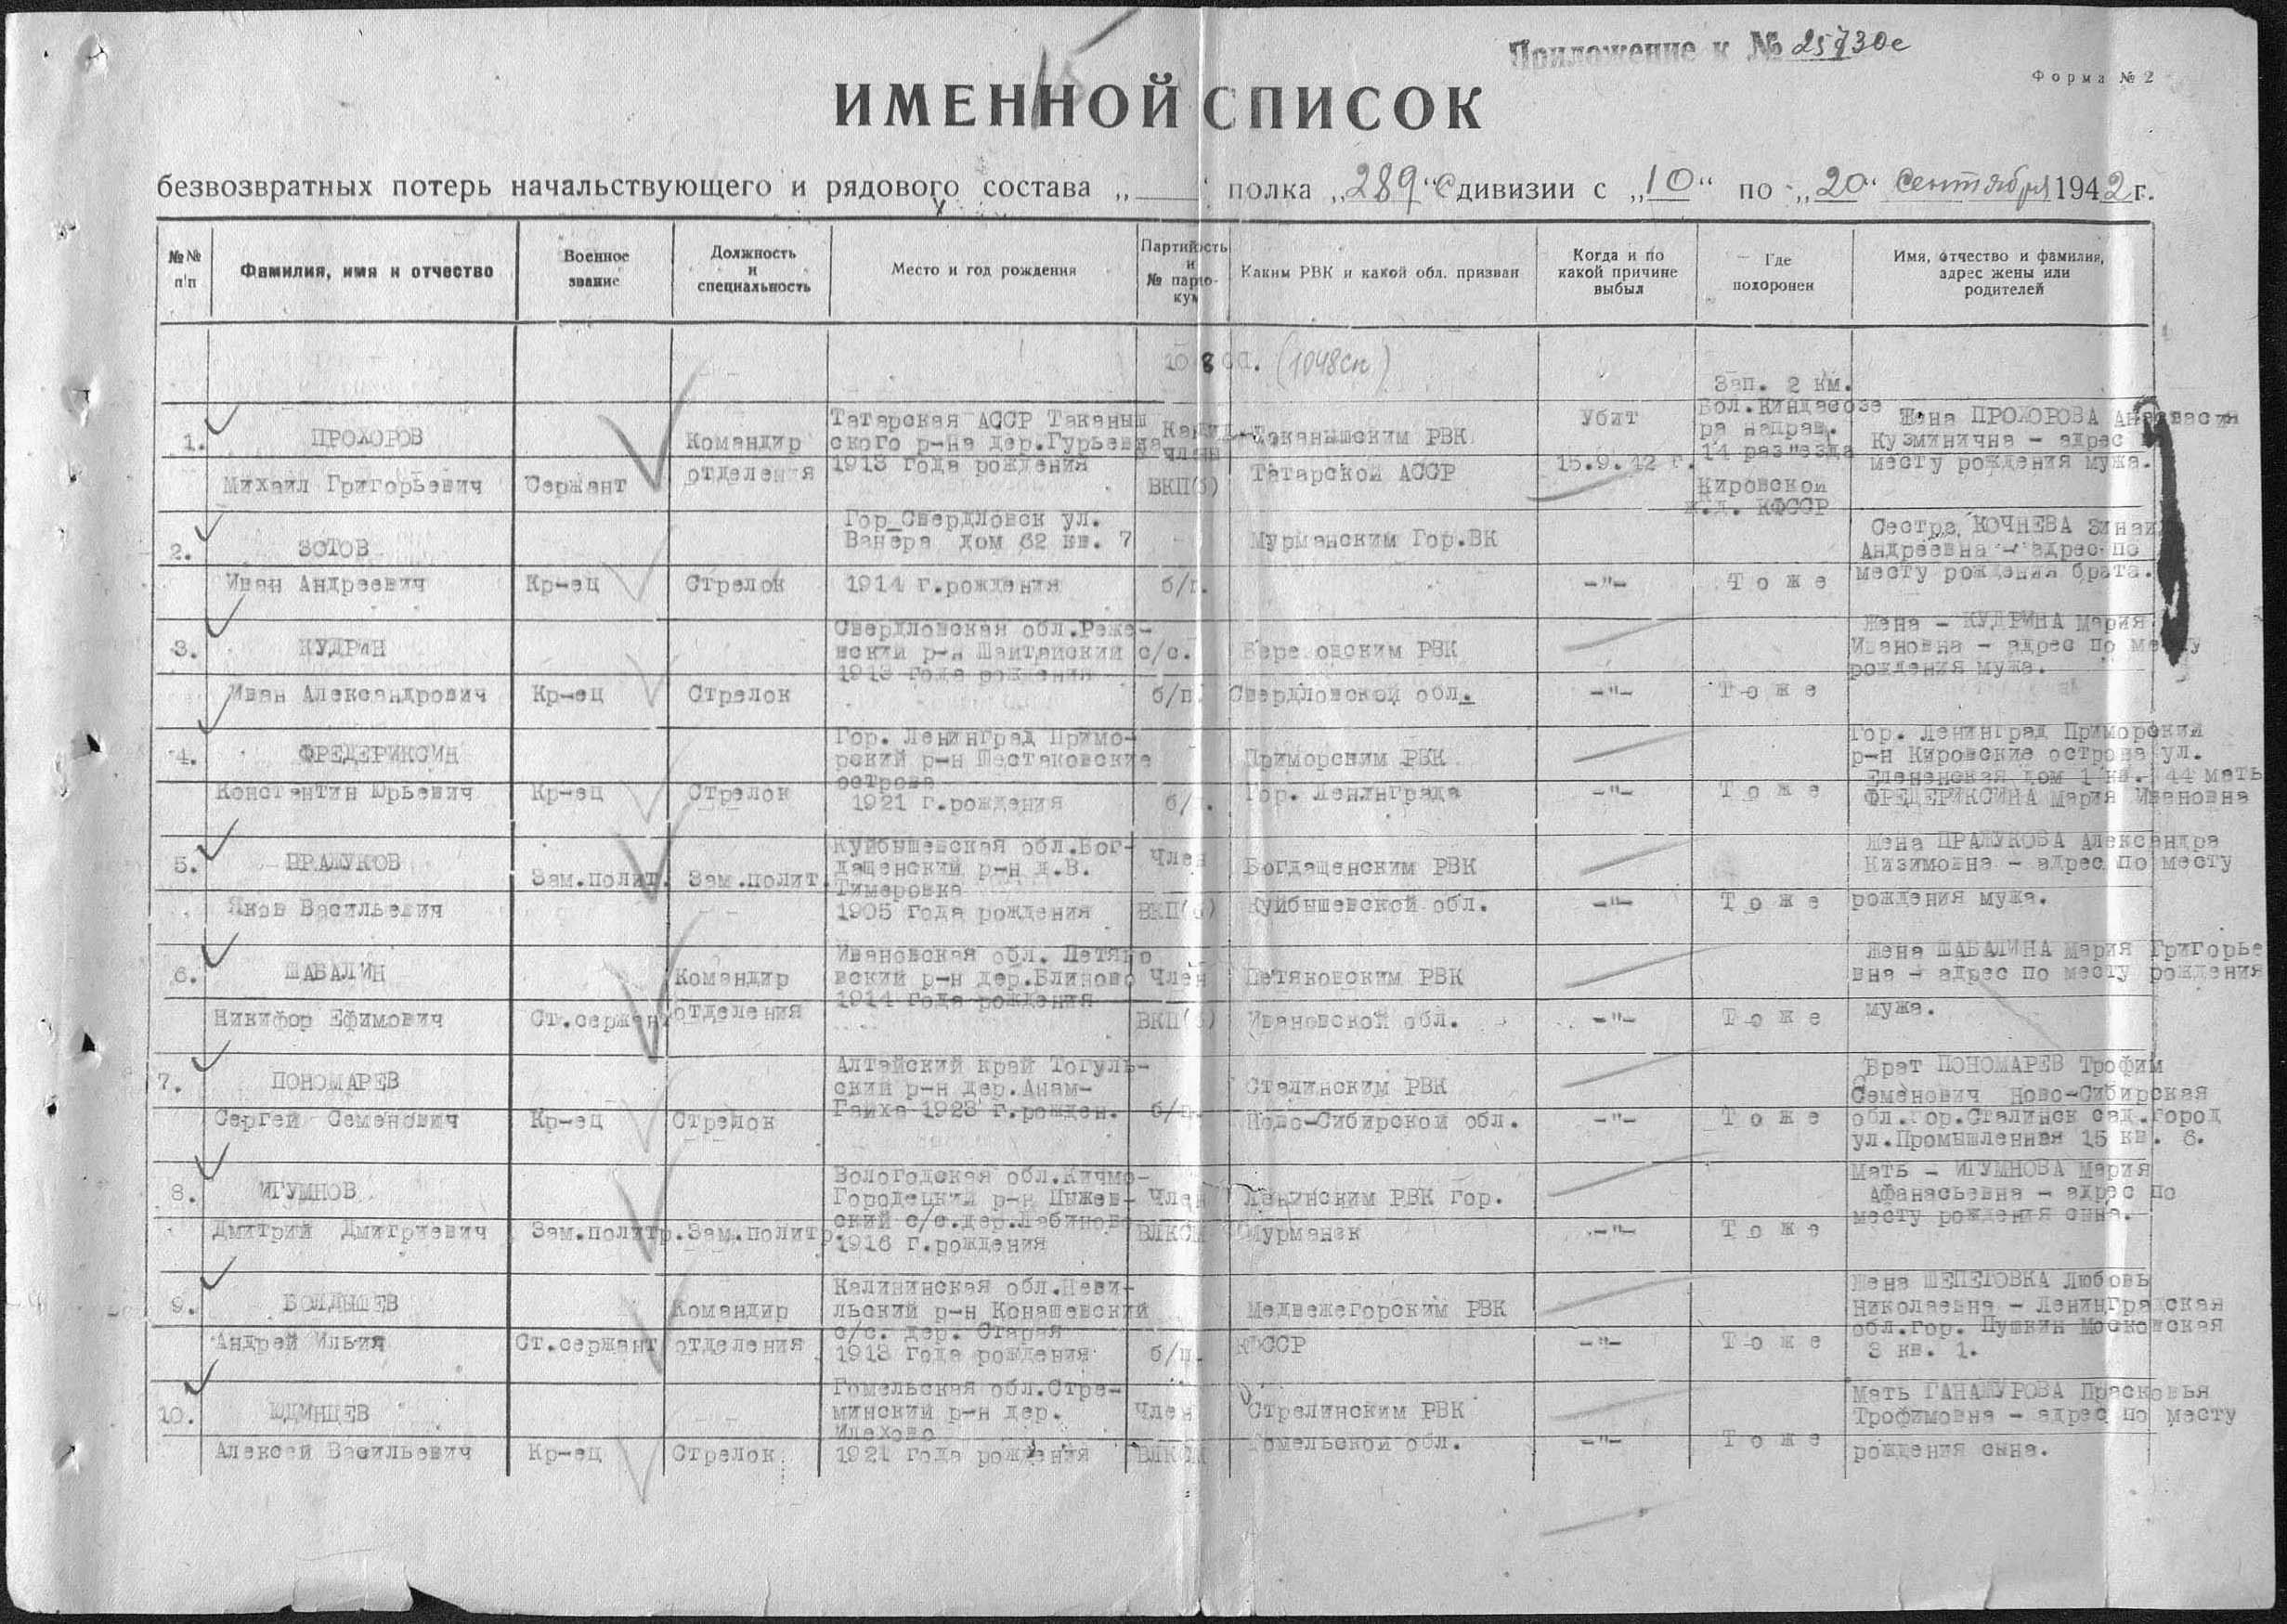 Приложение к № 25730с
Форма № 2
ИМЕННОЙ СПИСОК
безвозвратных потерь начальствующего и рядового состава „ “ полка „289“ с дивизии с „10“ по „20“ сентября 1942 г.
№№ п/п
Фамилия, имя и отчество
Военное звание
Должность и специальность
Место и год рождения
Партийность и №
Каким РВК и какой обл. призван
Когда и по какой причине выбыл
Где похоронен
Имя, отчество и фамилия, адрес жены или родителей
(1048сп)
1.
ПРОХОРОВ
Михаил Григорьевич
Сержант
Командир
отделения
Татарская АССР Таканыш
ского р-на дер.Гурьевка
1913 года рождения
Канид.
члены
ВКП(б)
Таканышским РВК
Татарской АССР
Убит
15.9.42 г.
Зап. 2 км.
Бол.Киндасозе
ра направ.
14 разъезда
Кировской
ж.д. КФССР
Жена ПРОХОРОВА Анастасия
Кузминична - адрес
месту рождения мужа.
2.
ЗОТОВ
Иван Андреевич
Кр-ец
Стрелок
Гор Свердловск ул.
Ванера дом 62 кв. 7
1914 г.рождения
б/п.
Мурманским Гор.ВК
-"-
Тоже
Сестра КОЧНЕВА Зинаи
Андреевна - адрес по
месту рождения брата.
3.
КУДРИН
Иван Александрович
Кр-ец
Стрелок
Свердловская обл.Реже-
вский р-н Шайтанский с/с.
1913 года рождения
б/п.
Березовским РВК
Свердловской обл.
-"-
Тоже
Жена - КУДРИНА Мария
Ивановна - адрес по месту
рождения мужа.
4.
ФРЕДЕРИКСИН
Константин Юрьевич
Кр-ец
Стрелок
Гор. Ленинград Примо-
рский р-н Шестаковские
острова
1921 г.рождения
б/п.
Приморским РВК
Гор. Ленинграда
-"-
Тоже
Гор. Ленинград Приморский
р-н Кировские острова ул.
Еленская дом 1 кв. 44 мать
ФРЕДЕРИКСИНА Мария Ивановна
5.
ПРАЖУКОВ
Яков Васильевич
Зам.полит.
Зам.полит.
Куйбышевская обл.Бог-
дащенский р-н д.В.
Тимеровка
1905 года рождения
Член
ВКП(б)
Богдащенским РВК
Куйбышевской обл.
-"-
Тоже
Жена ПРАЖУКОВА Александра
Кизимовна - адрес по месту
рождения мужа.
6.
ШАБАЛИН
Никифор Ефимович
Ст.сержант
Командир
отделения
Ивановская обл. Петяко
вский р-н дер.Блиново
1914 года рождения
Член
ВКП(б)
Петяковским РВК
Ивановской обл.
-"-
Тоже
Жена ШАБАЛИНА Мария Григорье
вна - адрес по месту рождения
мужа.
7.
ПОНОМАРЕВ
Сергей Семенович
Кр-ец
Стрелок
Алтайский край Тогуль-
ский р-н дер.Анам-
Гайха 1923 г.рожден.
б/п.
Сталинским РВК
Ново-Сибирской обл.
-"-
Тоже
Брат ПОНОМАРЕВ Трофим
Семенович Ново-Сибирская
обл.гор.Сталинск сад.город
ул.Промышленная 15 кв. 6.
8.
ИГУМНОВ
Дмитрий Дмитриевич
Зам.политр.
Зам.политр.
Вологодская обл.Кичмо-
Городецкий р-н Пыжев-
ский с/с.дер.Лябиново
1916 г.рождения
Член
ВЛКСМ
Ленинским РВК гор.
Мурманск
-"-
Тоже
Мать - ИГУМНОВА Мария
Афанасьевна - адрес по
месту рождения сына.
9.
БОЛДЫШЕВ
Андрей Ильия
Ст.сержант
Командир
отделения
Калининская обл.Неви-
льский р-н Конашевский
с/с. дер. Старая
1913 года рождения
б/п.
Медвежегорским РВК
КФССР
-"-
Тоже
Жена ШЕПЕТОВКА Любовь
Николаевна - Ленинградская
обл.гор. Пушкин Московская
3 кв. 1.
10.
ЮДИНЦЕВ
Алексей Васильевич
Кр-ец
Стрелок
Гомельская обл.Стре-
минский р-н дер.
Илехово
1921 года рождения
Член
ВЛКСМ
Стрелинским РВК
Гомельской обл.
-"-
Тоже
Мать ГАНАЖУРОВА Прасковья
Трофимовна - адрес по месту
рождения сына.